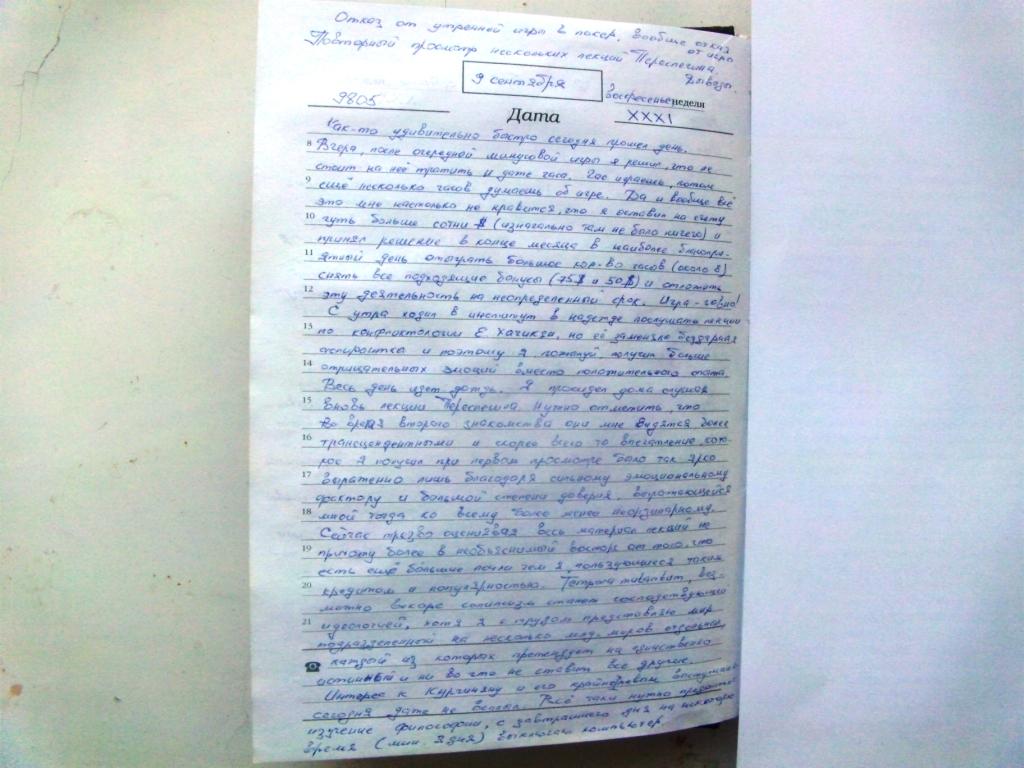 Отказ от утренней игры в покер, вообще отказ
от игр
Повторный просмотр нескольких лекций Переслегина,
Выводы.
9 сентября
воскресенье неделя
9805
Дата
XXXI
Как-то удивительно быстро сегодня прошел день.
8 Вчера, после очередной минусовой игры я решил, что не
стоит на неё тратить и даже часа. Час играешь, потом
9 ещё несколько часов думаешь об игре. Да и вообще всё
это мне настолько не нравится, что я оставил на счету
10 чуть больше сотни $ (изначально там не было ничего) и
принял решение в конце месяца в наиболее благопри-
11 ятный день отыграть большое кол-во часов (около 8)
снять все подходящие бонусы (75$ и 50$) и отложить
12 эту деятельность на неопределенный срок. Игра - говно!
С утра ходил в институт в надежде послушать лекции
13 по конфликтологии Е. Хачикян, но её заменяла бездарная
аспирантка и поэтому я, пожалуй, получил больше
14 отрицательных эмоций вместо положительного опыта.
Весь день идет дождь. Я просидел дома слушая
15 вновь лекции Переслегина. Нужно отметить, что
во время второго знакомства они мне видятся более
16 трансцендентными и скорее всего то впечатление, кото-
рое я получил при первом просмотре было так ярко
17 выражено лишь благодаря сильному эмоциональному
фактору и большой степени доверия,
18 мной тогда ко всему более менее неординарному.
Сейчас трезво оценивая весь материал лекций не
19 прихожу более в необъяснимый восторг от того, что
есть ещё большие психи чем я, пользующиеся таким
20 кредитом и популярностью. воз-
можно вскоре солипсизм станет господствующей
21 идеологией, хотя я с трудом представляю мир
подразделенный на несколько млд. миров отдельных,
каждый из которых претендует на единственно
истинный и ни во что не ставит все другие.
Интерес к Кургиняну и его крайнейшим
сегодня даже не велик. Всё таки нужно продолжать
изучение философии, с завтрашнего дня на некоторое
время (мин. 3 дня) выключаю компьютер.